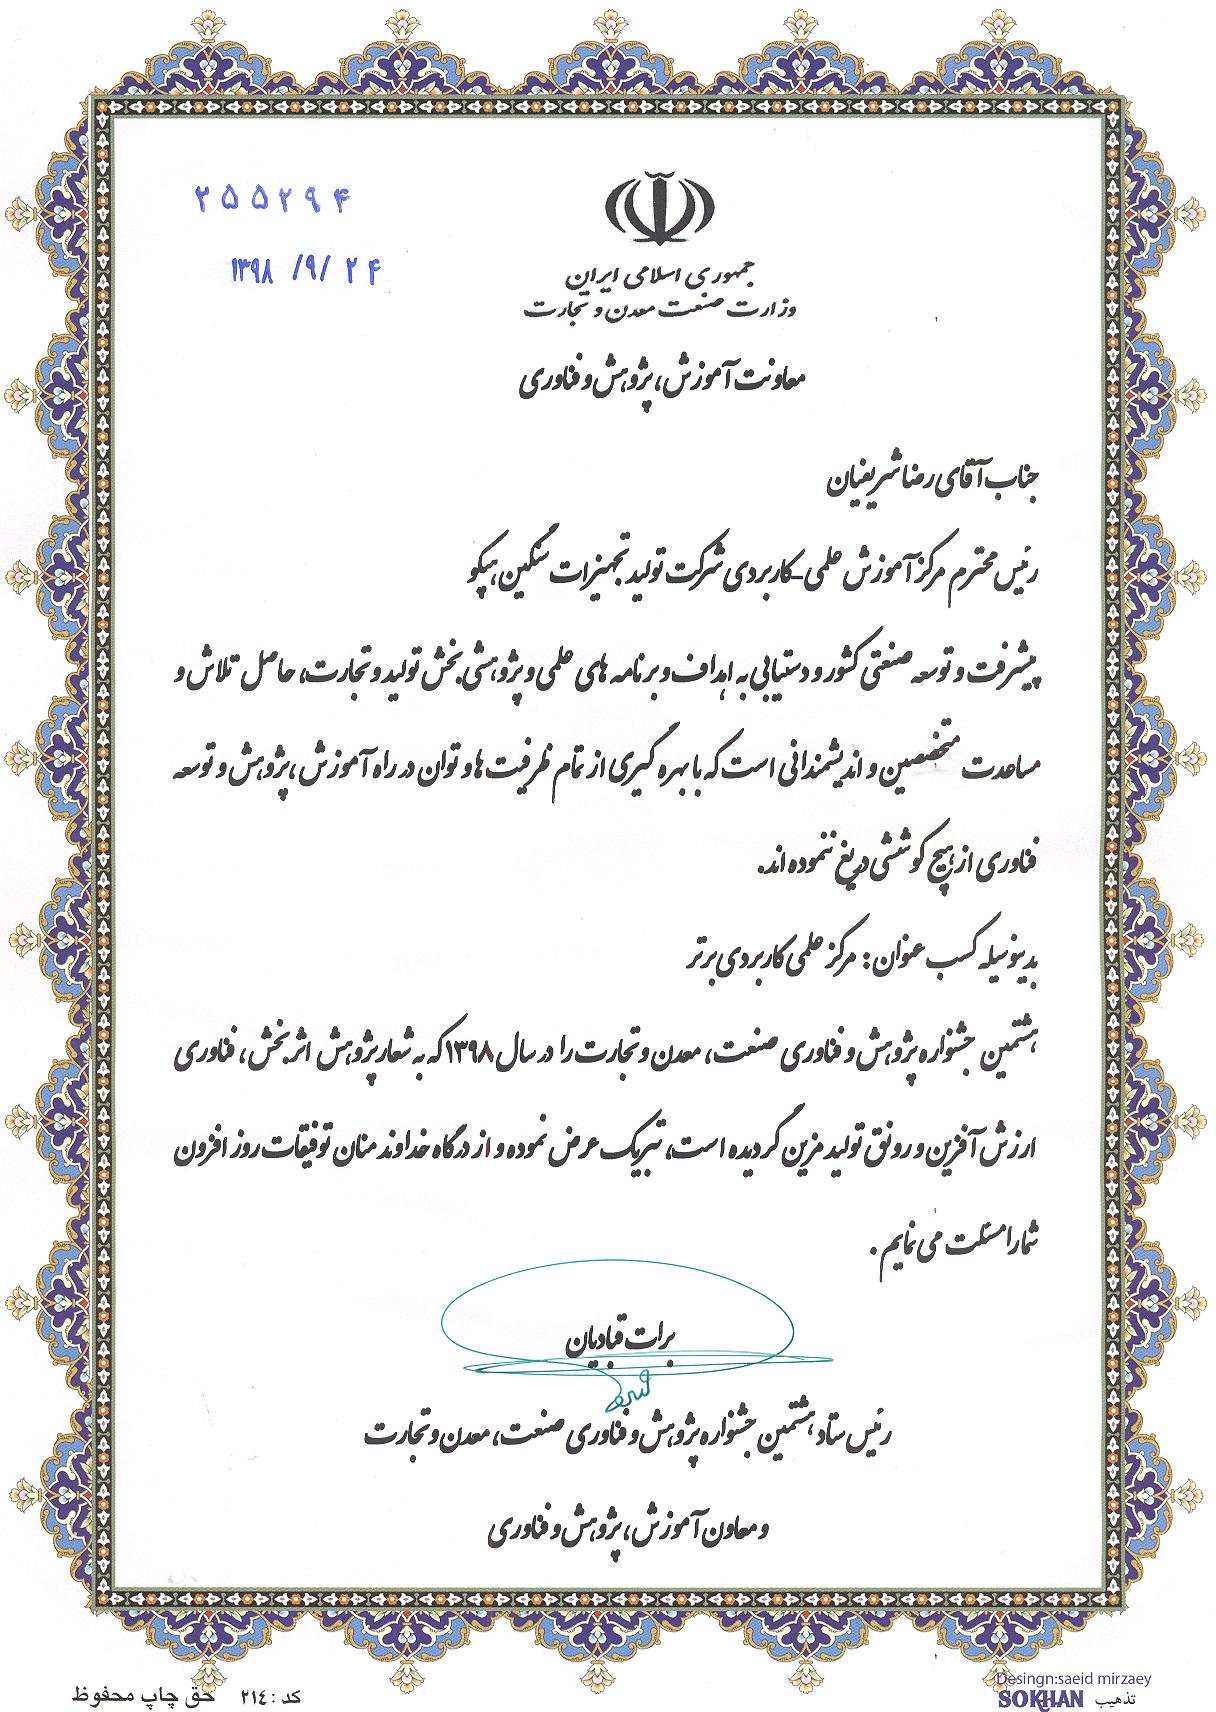 ۲۵۵۲۹۴
۱۳۹۸ /۹/ ۲۴
جمهوری اسلامی ایران
وزارت صنعت معدن و تجارت
معاونت آموزش، پژوهش و فناوری
جناب آقای رضا شریفیان
رئیس محترم مرکز آموزش علمی-کاربردی شرکت تولید تجهیزات سنگین هپکو
پیشرفت و توسعه صنعتی کشور و دستیابی به اهداف و برنامه های علمی و پژوهشی بخش تولید و تجارت، حاصل تلاش و
مساعدت متخصصین و اندیشمندانی است که با بهره گیری از تمام ظرفیت ها و توان در راه آموزش ،پژوهش و توسعه
فناوری از هیچ کوششی دریغ ننموده اند.
بدینوسیله کسب عنوان: مرکز علمی کاربردی برتر
هشتمین جشنواره پژوهش و فناوری صنعت، معدن و تجارت را در سال ۱۳۹۸ که به شعار پژوهش اثربخش، فناوری
ارزش آفرین و رونق تولید مزین گردیده است، تبریک عرض نموده و از درگاه خداوند منان توفیقات روز افزون
شما را مسئلت می نمایم .
برات قبادیان
رئیس ستاد هشتمین جشنواره پژوهش و فناوری صنعت، معدن و تجارت
و معاون آموزش، پژوهش و فناوری
Desingn:saeid mirzaey
تذهیب SOKHAN
کد : ٢١٤ حق چاپ محفوظ